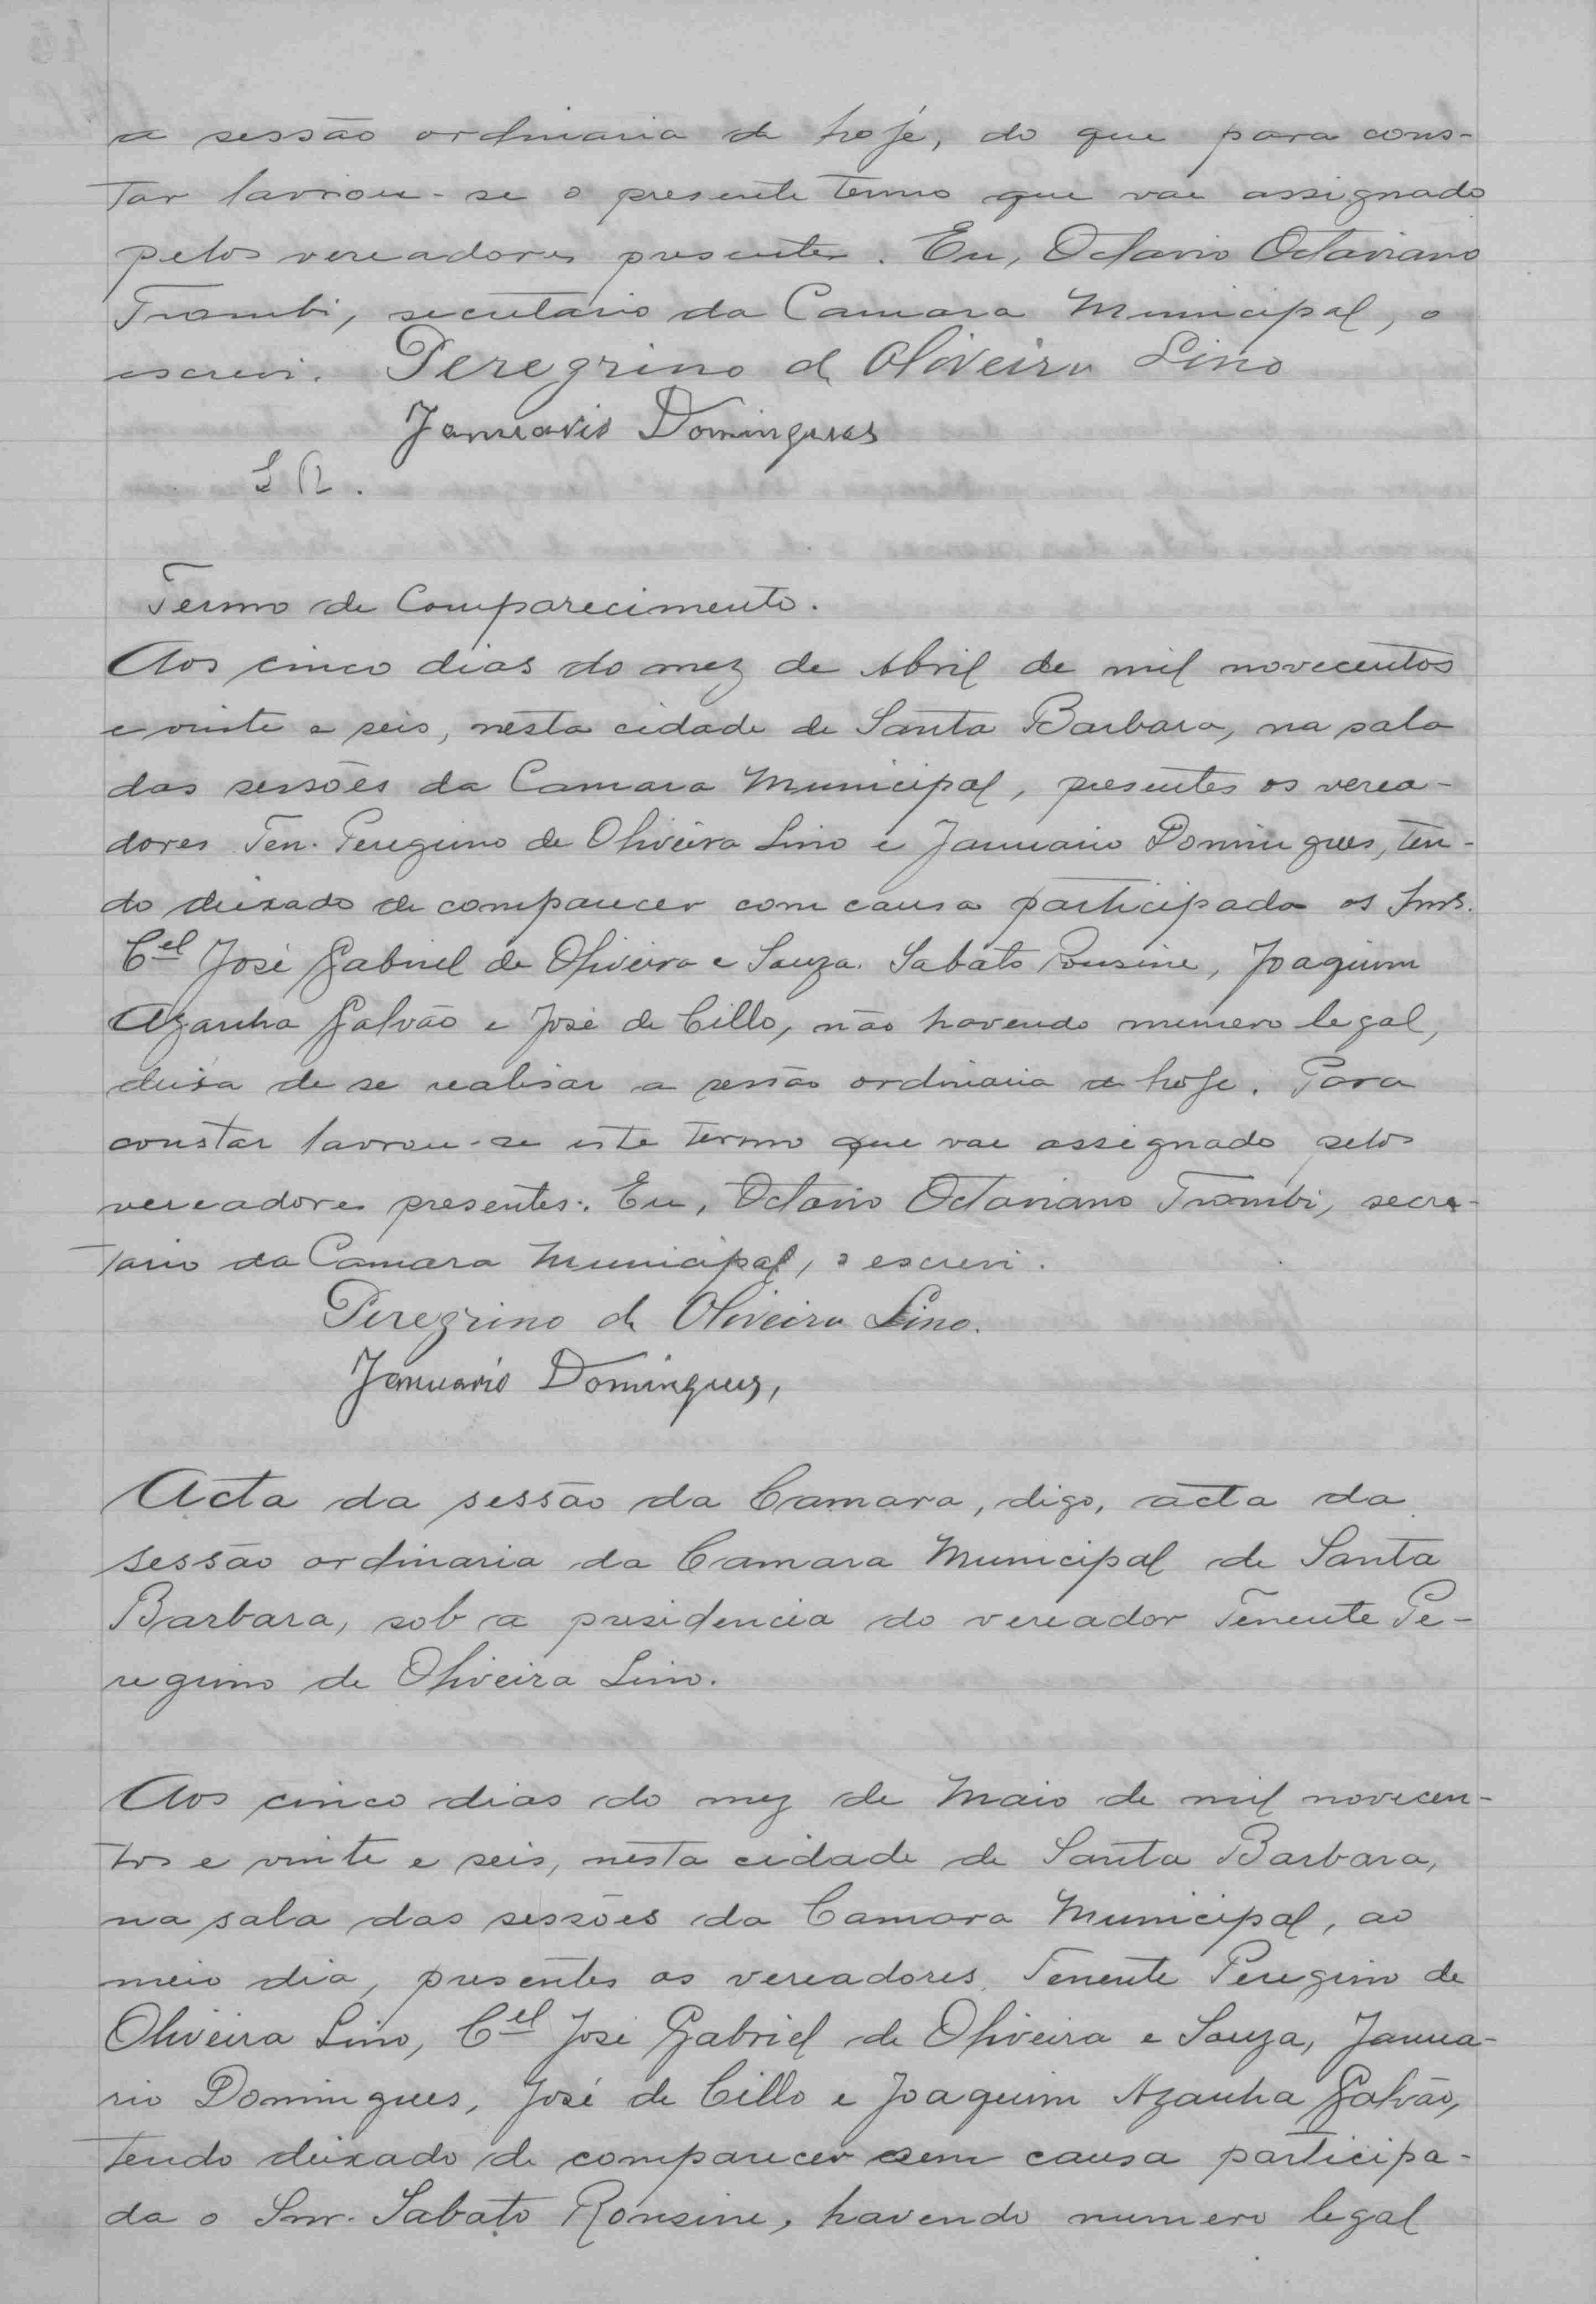 a sessão ordinaria de hoje, do que para cons-
tar lavrou-se o presente termo que vae assignado
pelos vereadores presentes. Eu, Octavio Octaviano
Trombi, secretario da Camara Municipal, o
escrevi. Peregrino de Oliveira Lino
Januario Domingues
S R.
Termo de Comparecimento.
Aos cinco dias do mez de Abril de mil novecentos
e vinte e seis, nesta cidade de Santa Barbara, na sala
das sessões da Camara Municipal, presentes os verea-
dores Ten. Peregrino de Oliveira Lino e Januario Domingues, ten-
do deixado de comparecer com causa participada os Snrs.
Cel José Gabriel de Oliveira e Souza. Sabato Ronsine, Joaquim
Azanha Galvão e José de Cillo, não havendo numero legal,
deixa de se realisar a sessão ordinaria de hoje. Para
constar lavrou-se este termo que vae assignado pelos
vereadores presentes. Eu, Octavio Octaviano Trombi, secre-
tario da Camara Municipal, o escrevi.
Peregrino de Oliveira Lino.
Januario Domingues,
Acta da sessão da Camara, digo, acta da
sessão ordinaria da Camara Municipal de Santa
Barbara, sob a presidencia do vereador Tenente Pe-
regrino de Oliveira Lino.
Aos cinco dias do mez de Maio de mil novecen-
tos e vinte e seis, nesta cidade de Santa Barbara,
na sala das sessões da Camara Municipal, ao
meio dia, presentes os vereadores, Tenente Peregrino de
Oliveira Lino, Cel José Gabriel de Oliveira e Souza, Janua-
rio Domingues, José de Cillo e Joaquim Azanha Galvão,
tendo deixado de comparecer sem causa participa-
da o Snr. Sabato Ronsine, havendo numero legal